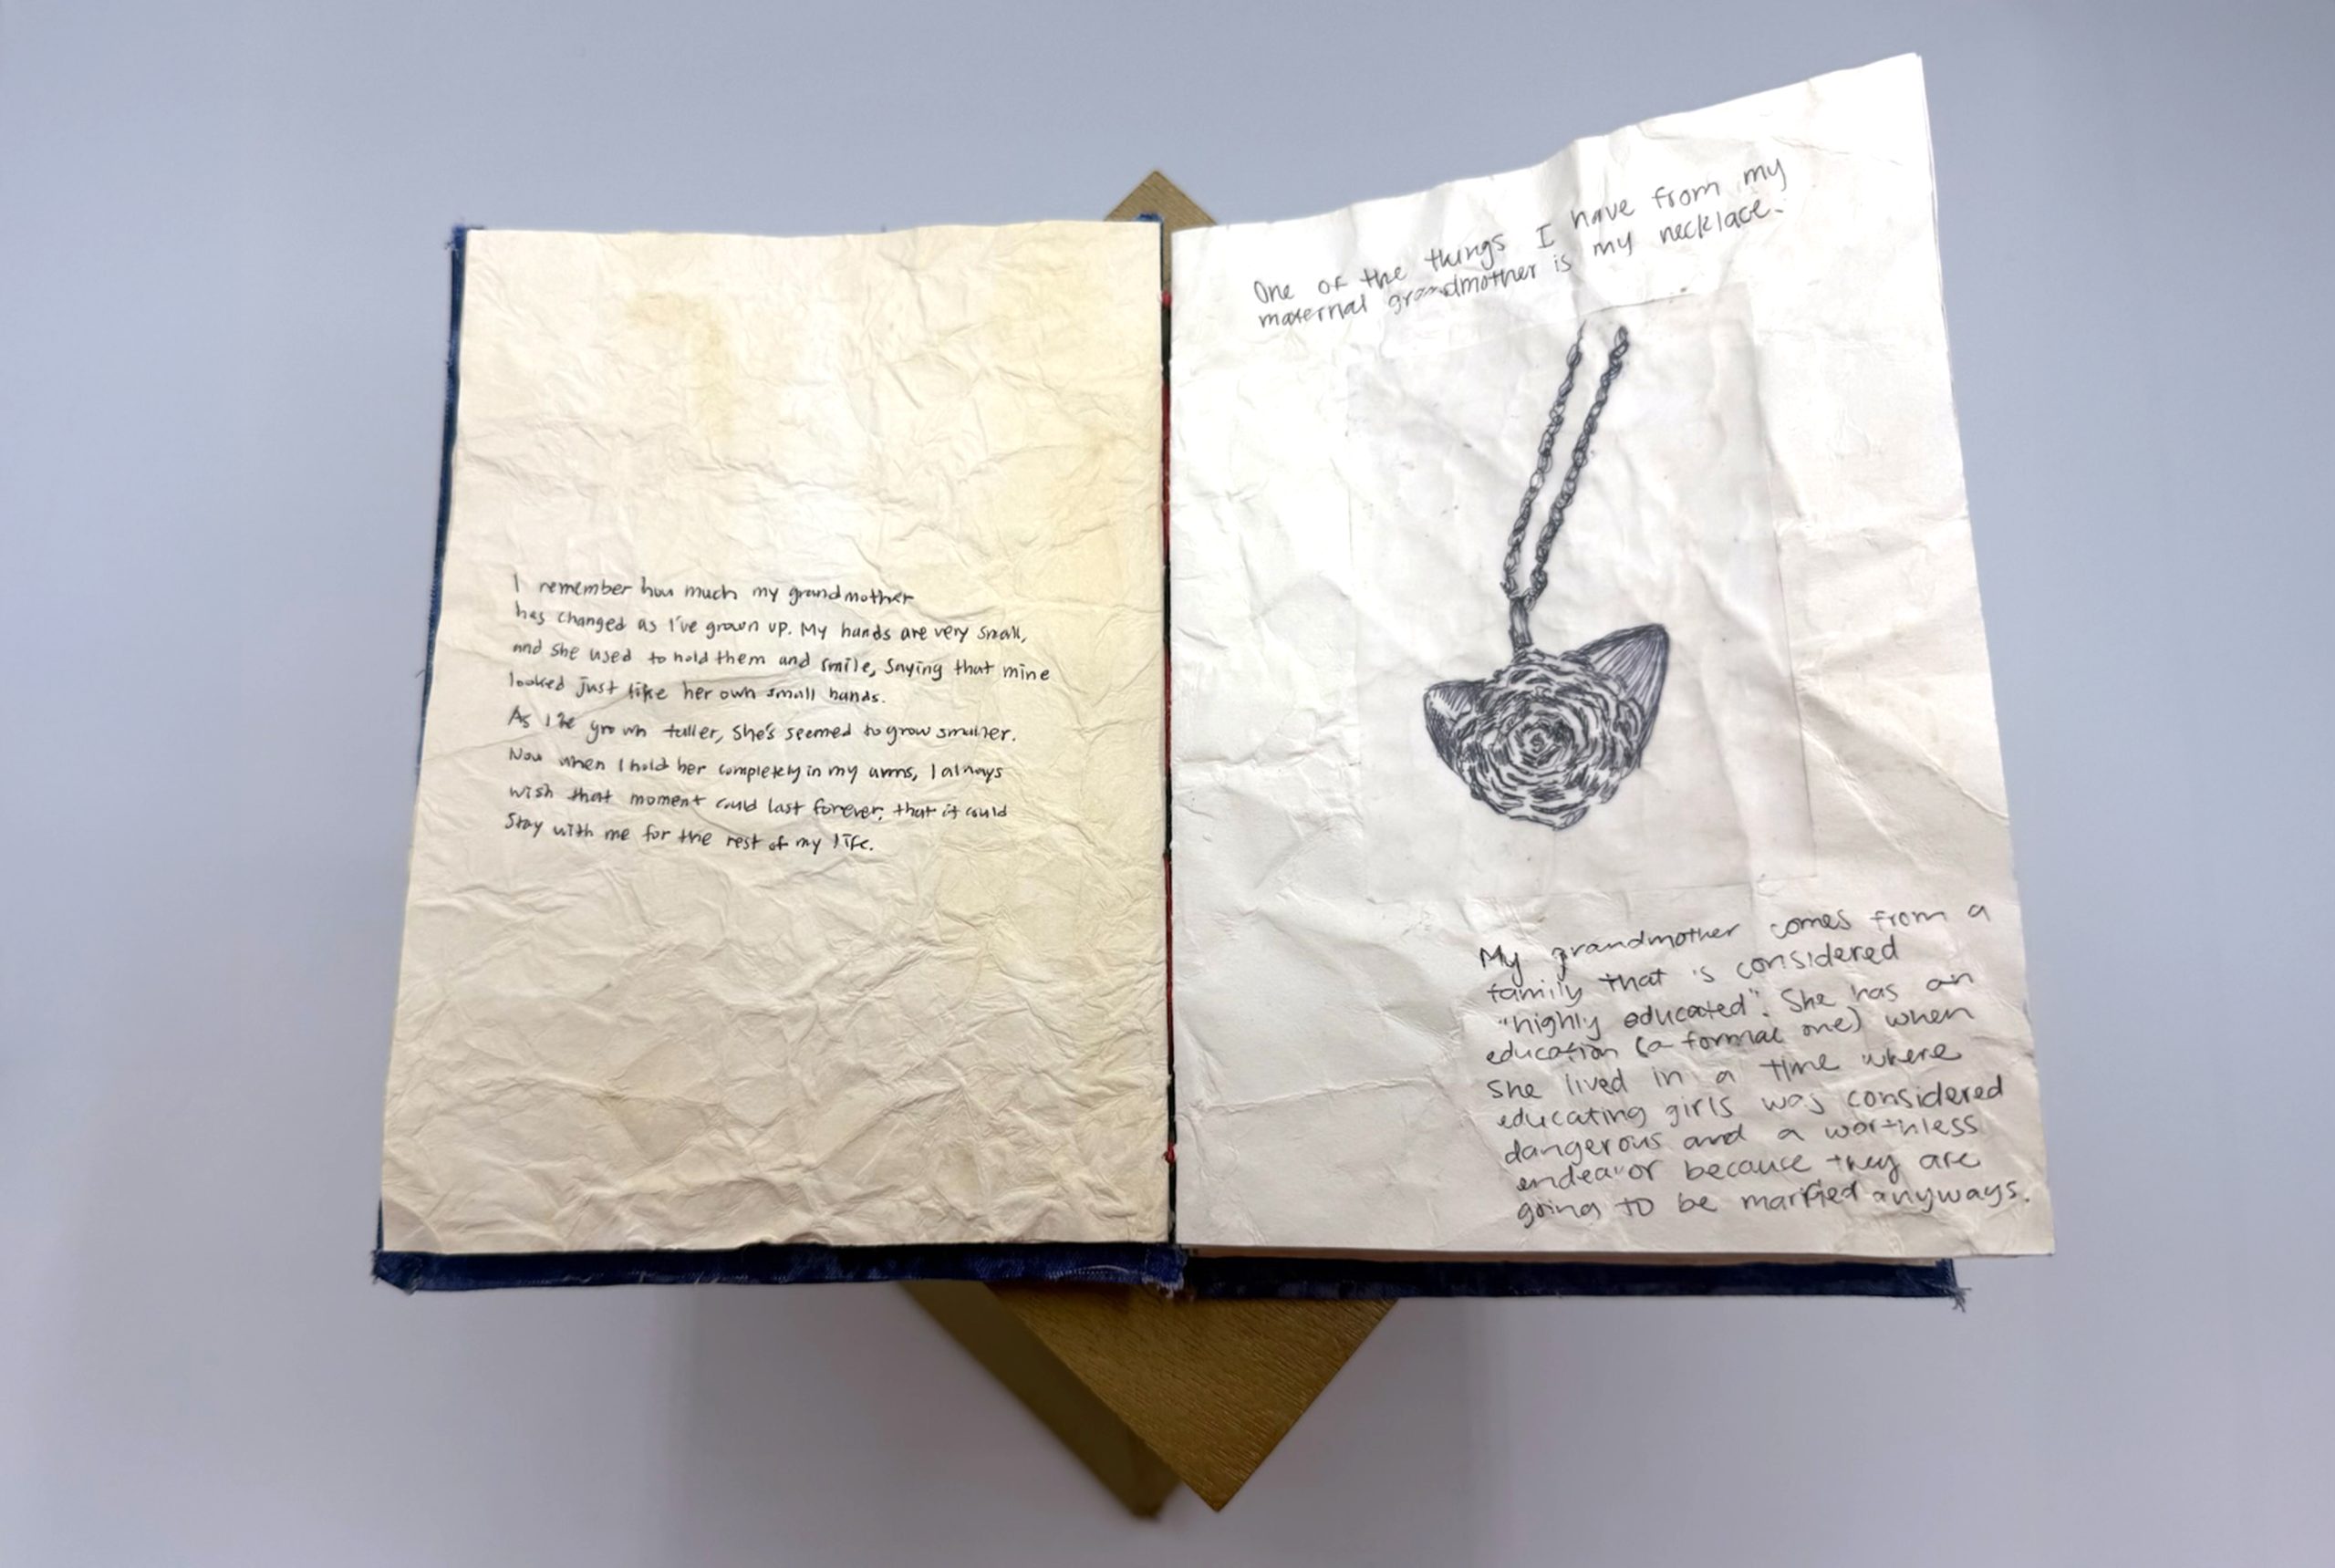 I remember how much my grandmother
has changed as I've grown up. My hands are very small,
and she used to hold them and smile, saying that mine
looked just like her own small hands.
As I've grown taller, she's seemed to grow smaller.
Now when I hold her completely in my arms, I always
wish that moment could last forever, that it could
stay with me for the rest of my life.
One of the things I have from my
maternal grandmother is my necklace.
My grandmother comes from a
family that is considered
"highly educated". She has an
education (a formal one) when
she lived in a time where
educating girls was considered
dangerous and a worthless
endeavor because they are
going to be married anyways.